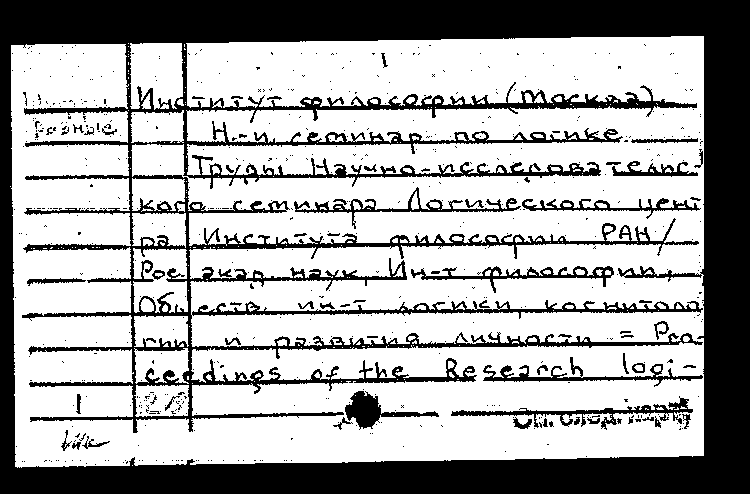 1
Институт философии (Москва).
Разные
Н.-и. семинар по логике
Труды Научно-исследователис-
кого семинара Логического цент
ра Института философии РАН/
Рос акад. наук, Ин-т философии,
Обществ. ин-т логики, когнитоло
гии и развития личности = Pro-
ceedings of the Research logi-
1
См. след. карт